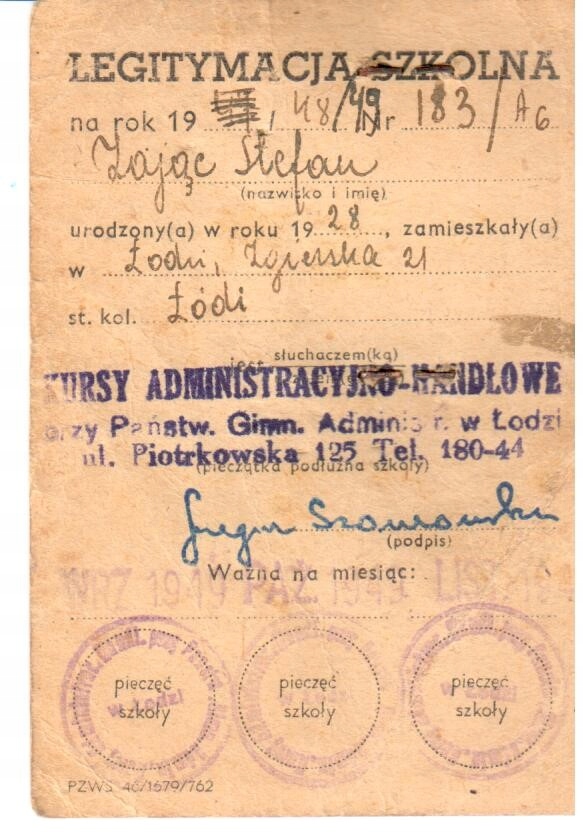 LEGITYMACJA SZKOLNA
na rok 19 / 48/49 Nr 183/A6
Zając Stefan
(nazwisko i imię)
urodzony(a) w roku 19 28, zamieszkały(a)
w Łodzi, Zgierska 21
st. kol. Łódź
jest słuchaczem(ką)
KURSY ADMINISTRACYJNO-HANDLOWE
przy Państw. Gimn. Administr. w Łodzi
ul. Piotrkowska 125 Tel. 180-44
(pieczątka podłużna szkoły)
(podpis)
Ważna na miesiąc:
WRZ. 1949 PAŹ. 1949 LIST. 19
pieczęć pieczęć pieczęć
szkoły szkoły szkoły
w Łodzi
PZWS 46/1679/762